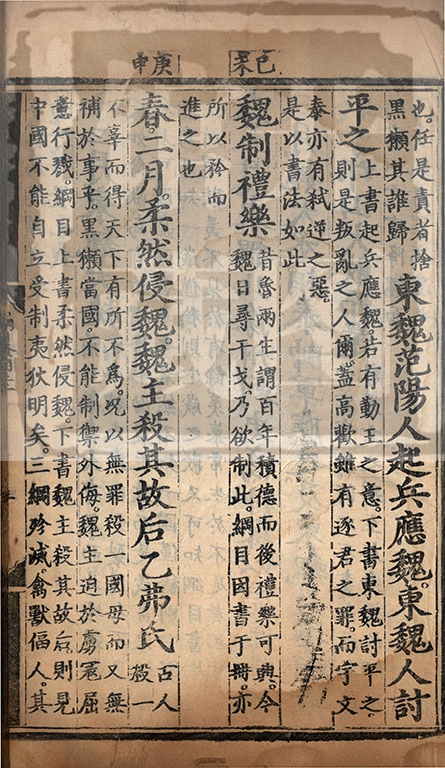 己未
庚申
也。任是責者捨
黑獺其誰歸
東魏范陽人起兵應魏。東魏人討
平之
上書起兵應魏。若有勤王之意。下書東魏討平之。
則是叛亂之人爾。蓋高歡雖有逐君之罪。而宇文
泰亦有弑逆之惡。
是以書法如此
魏制禮樂
昔魯兩生謂百年積德而後禮樂可興。今
魏日尋干戈。乃欲制此。綱目因書于冊。亦
所以矜而
進之也
春。二月。柔然侵魏。魏主殺其故后乙弗氏
古人
殺一
不辜而得天下有所不為。況以無罪殺一國母而又無
補於事乎。黑獺當國。不能制禦外侮。魏主迫於虜寇屈
意行戮。綱目上書柔然侵魏。下書魏主殺其故后。則見
中國不能自立受制夷狄明矣。三綱殄滅禽獸偪人。其